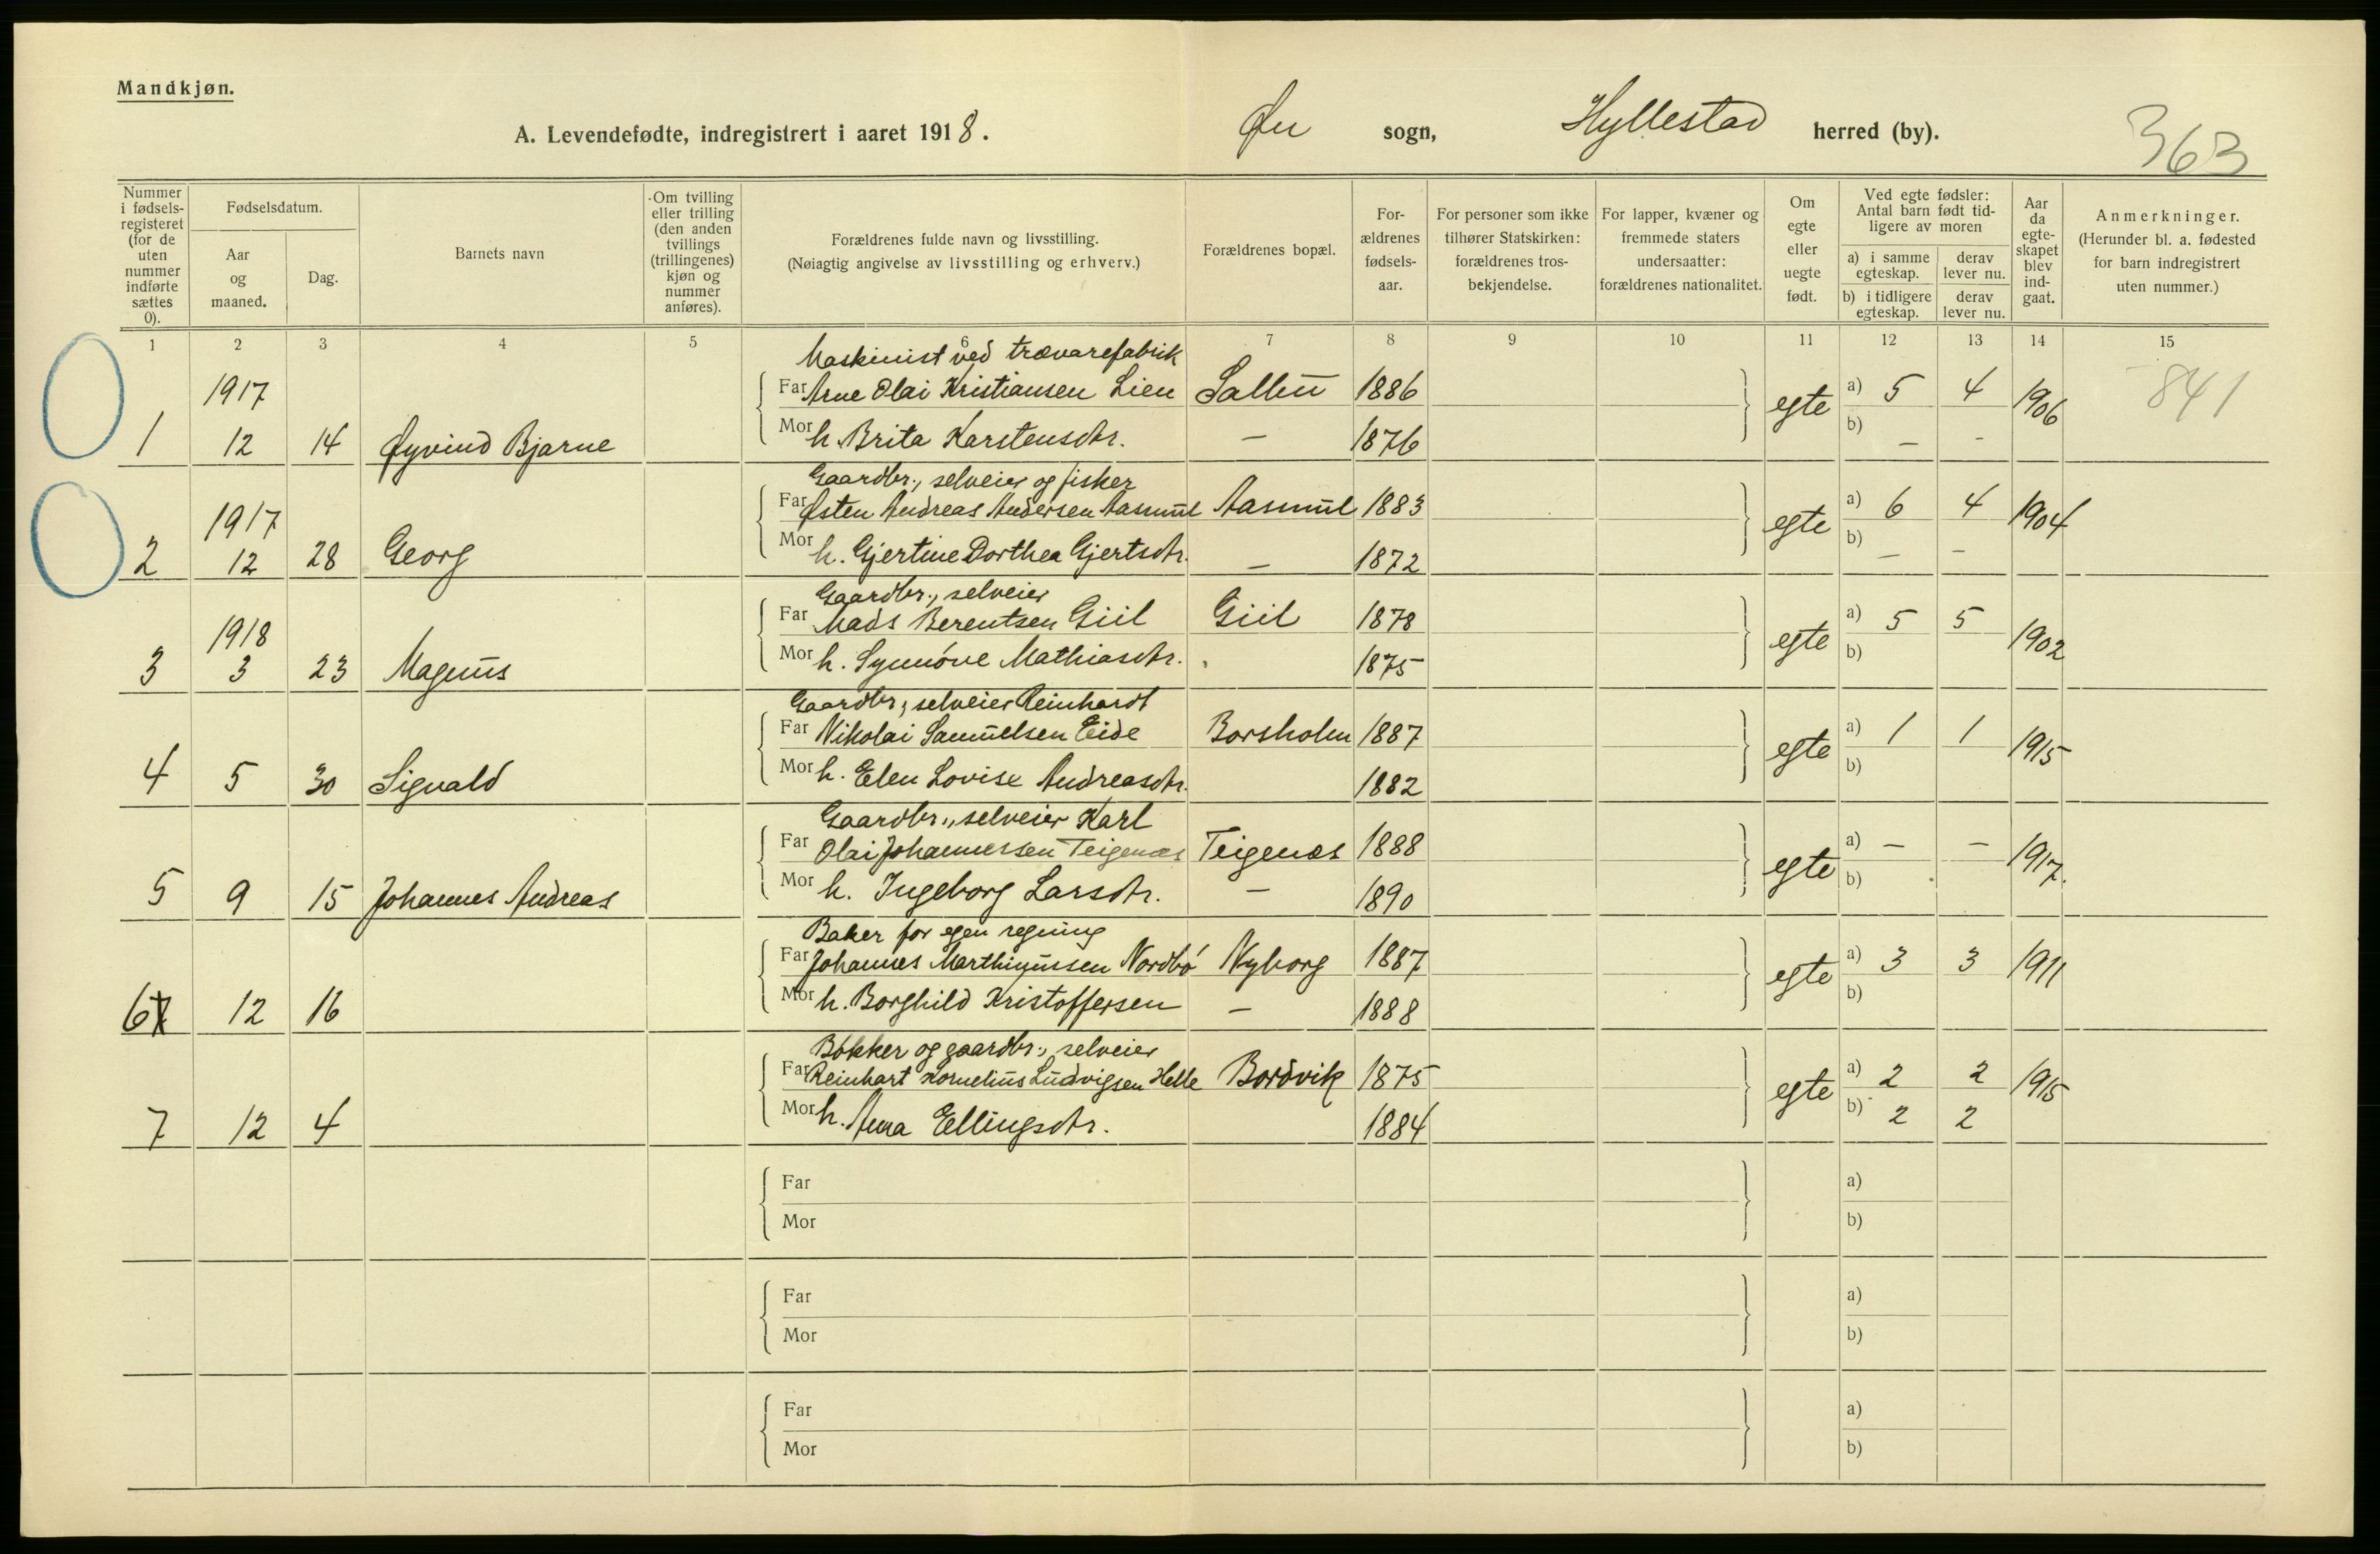 Mandkjøn.
A. Levendefødte, indregistrert i aaret 1918. Øn sogn, Hyllestad herred (by).
363
Nummer i fødsels-registeret (for de uten nummer indførte sættes 0).
Fødselsdatum.
Aar og maaned.
Dag.
Barnets navn
Om tvilling eller trilling (den anden tvillings (trillingenes) kjøn og nummer anføres).
Forældrenes fulde navn og livsstilling.
(Nøiagtig angivelse av livsstilling og erhverv.)
Forældrenes bopæl.
For-ældrenes fødsels-aar.
For personer som ikke tilhører Statskirken: forældrenes tros-bekjendelse.
For lapper, kvæner og fremmede staters undersaatter: forældrenes nationalitet.
Om egte eller uegte født.
Ved egte fødsler: Antal barn født tid-ligere av moren
a) i samme egteskap.
derav lever nu.
b) i tidligere egteskap.
derav lever nu.
Aar da egte-skapet blev ind-gaat.
Anmerkninger.
(Herunder bl. a. fødested for barn indregistrert uten nummer.)
1 2 3 4 5 6 7 8 9 10 11 12 13 14 15
Maskinist ved trævarefabrik
1917 Far Arne Olai Kristiansen Lien Salbu 1886 egte a) 5 4 1906 841
1 12 14 Øyvind Bjarne Mor h. Brita Karstensdtr. — 1876 b) — -
Gaardbr., selveier og fisker
1917 Far Østen Andreas Andersen Aasmul Aasmul 1883 egte a) 6 4 1904
2 12 28 Georg Mor h. Gjertine Dorthea Gjertsdtr. — 1872 b) — —
Gaardbr., selveier
1918 Far Mads Berentsen Giil Giil 1878 egte a) 5 5 1902
3 3 23 Magnus Mor h. Synnóve Mathiasdtr. 1875 b)
Gaardbr., selveier Reinhardt
Far Nikolai Samuelsen Eide Borsholm 1887 egte a) 1 1 1915
4 5 30 Sigvald Mor h. Elen Lovise Andreasdtr. 1882 b)
Gaardbr., selveier Karl
Far Olai Johannessen Teigenæs Teigenæs 1888 egte a) — — 1917.
5 9 15 Johannes Andreas Mor h. Ingeborg Larsdtr. — 1890 b)
Baker for egen regning
Far Johannes Marthinussen Nordbó Nyborg 1887 egte a) 3 3 1911
6 12 16 Mor h. Borghild Kristoffersen — 1888 b)
Bókker og gaardbr., selveier
Far Reinhart Kornelius Ludvigsen Helle Bordvik 1875 egte a) 2 2 1915
7 12 4 Mor h. Anna Ellingsdtr. 1884 b) 2 2
Far a)
Mor b)
Far a)
Mor b)
Far a)
Mor b)